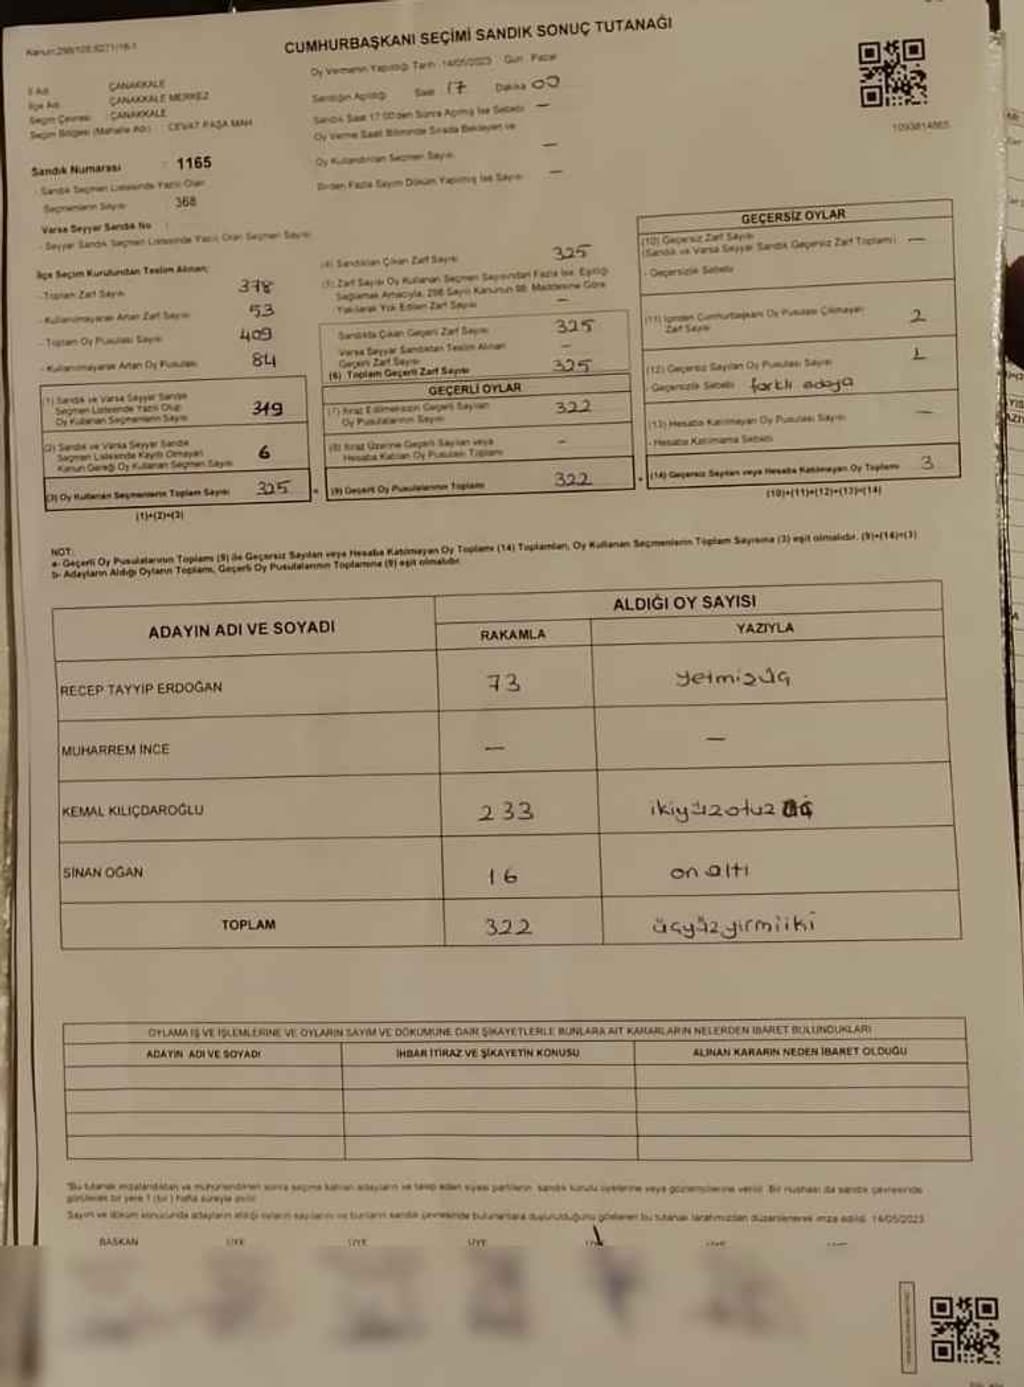 CUMHURBAŞKANI SEÇİMİ SANDIK SONUÇ TUTANAĞI
Oy Vermenin Yapıldığı Tarih : 14/05/2023 Gün : Pazar
İl Adı : ÇANAKKALE
İlçe Adı : ÇANAKKALE MERKEZ
Seçim Çevresi : ÇANAKKALE
Seçim Bölgesi (Mahalle Adı) : CEVAT PAŞA MAH
Sandığın Açıldığı Saat 17 Dakika 00
Sandık Saat 17:00'den Sonra Açılmış İse Sebebi —
Oy Verme Saati Bitiminde Sırada Bekleyen ve
Oy Kullandırılan Seçmen Sayısı —
Birden Fazla Sayım Döküm Yapılmış İse Sayısı —
1093814865
Sandık Numarası : 1165
- Sandık Seçmen Listesinde Yazılı Olan
Seçmenlerin Sayısı 368
Varsa Seyyar Sandık No :
- Seyyar Sandık Seçmen Listesinde Yazılı Olan Seçmen Sayısı
İlçe Seçim Kurulundan Teslim Alınan;
- Toplam Zarf Sayısı 378
- Kullanılmayarak Artan Zarf Sayısı 53
- Toplam Oy Pusulası Sayısı 409
- Kullanılmayarak Artan Oy Pusulası 84
(1) Sandık ve Varsa Seyyar Sandık
Seçmen Listesinde Yazılı Olup
Oy Kullanan Seçmenlerin Sayısı 319
(2) Sandık ve Varsa Seyyar Sandık
Seçmen Listesinde Kayıtlı Olmayan
Kanun Gereği Oy Kullanan Seçmen Sayısı 6
(3) Oy Kullanan Seçmenlerin Toplam Sayısı 325
(1)+(2)=(3)
(4) Sandıktan Çıkan Zarf Sayısı 325
(5) Zarf Sayısı Oy Kullanan Seçmen Sayısından Fazla İse, Eşitliği
Sağlamak Amacıyla, 298 Sayılı Kanunun 98. Maddesine Göre
Yakılarak Yok Edilen Zarf Sayısı —
Sandıkta Çıkan Geçerli Zarf Sayısı 325
Varsa Seyyar Sandıktan Teslim Alınan
Geçerli Zarf Sayısı —
(6) Toplam Geçerli Zarf Sayısı 325
GEÇERLİ OYLAR
(7) İtiraz Edilmeksizin Geçerli Sayılan
Oy Pusulalarının Sayısı 322
(8) İtiraz Üzerine Geçerli Sayılan veya
Hesaba Katılan Oy Pusulası Toplamı —
(9) Geçerli Oy Pusulalarının Toplamı 322
GEÇERSİZ OYLAR
(10) Geçersiz Zarf Sayısı
(Sandık ve Varsa Seyyar Sandık Geçersiz Zarf Toplamı) —
- Geçersizlik Sebebi
(11) İçinden Cumhurbaşkanı Oy Pusulası Çıkmayan
Zarf Sayısı 2
(12) Geçersiz Sayılan Oy Pusulası Sayısı 1
- Geçersizlik Sebebi farklı adaya
(13) Hesaba Katılmayan Oy Pusulası Sayısı —
- Hesaba Katılmama Sebebi
(14) Geçersiz Sayılan veya Hesaba Katılmayan Oy Toplamı 3
(10)+(11)+(12)+(13)=(14)
NOT:
a- Geçerli Oy Pusulalarının Toplamı (9) ile Geçersiz Sayılan veya Hesaba Katılmayan Oy Toplamı (14) Toplamları, Oy Kullanan Seçmenlerin Toplam Sayısına (3) eşit olmalıdır. (9)+(14)=(3)
b- Adayların Aldığı Oyların Toplamı, Geçerli Oy Pusulalarının Toplamına (9) eşit olmalıdır.
ADAYIN ADI VE SOYADI ALDIĞI OY SAYISI
RAKAMLA YAZIYLA
RECEP TAYYİP ERDOĞAN 73 yetmişüç
MUHARREM İNCE — —
KEMAL KILIÇDAROĞLU 233 ikiyüzotuz üç
SİNAN OĞAN 16 on altı
TOPLAM 322 üçyüzyirmiiki
OYLAMA İŞ VE İŞLEMLERİNE VE OYLARIN SAYIM VE DÖKÜMÜNE DAİR ŞİKAYETLERLE BUNLARA AİT KARARLARIN NELERDEN İBARET BULUNDUKLARI
ADAYIN ADI VE SOYADI İHBAR İTİRAZ VE ŞİKAYETİN KONUSU ALINAN KARARIN NEDEN İBARET OLDUĞU
"Bu tutanak imzalandıktan ve mühürlendikten sonra seçime katılan adayların ve talep eden siyasi partilerin sandık kurulu üyelerine veya gözlemcilerine verilir. Bir nüshası da sandık çevresinde
görülecek bir yere 1 (bir) hafta süreyle asılır.
Sayım ve döküm sonucunda adayların aldığı oyların sayılarını ve bunların sandık çevresinde bulunanlara duyurulduğunu gösteren bu tutanak tarafımızdan düzenlenerek imza edildi. 14/05/2023
BAŞKAN ÜYE ÜYE ÜYE